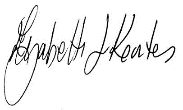 Elizabeth L Keates